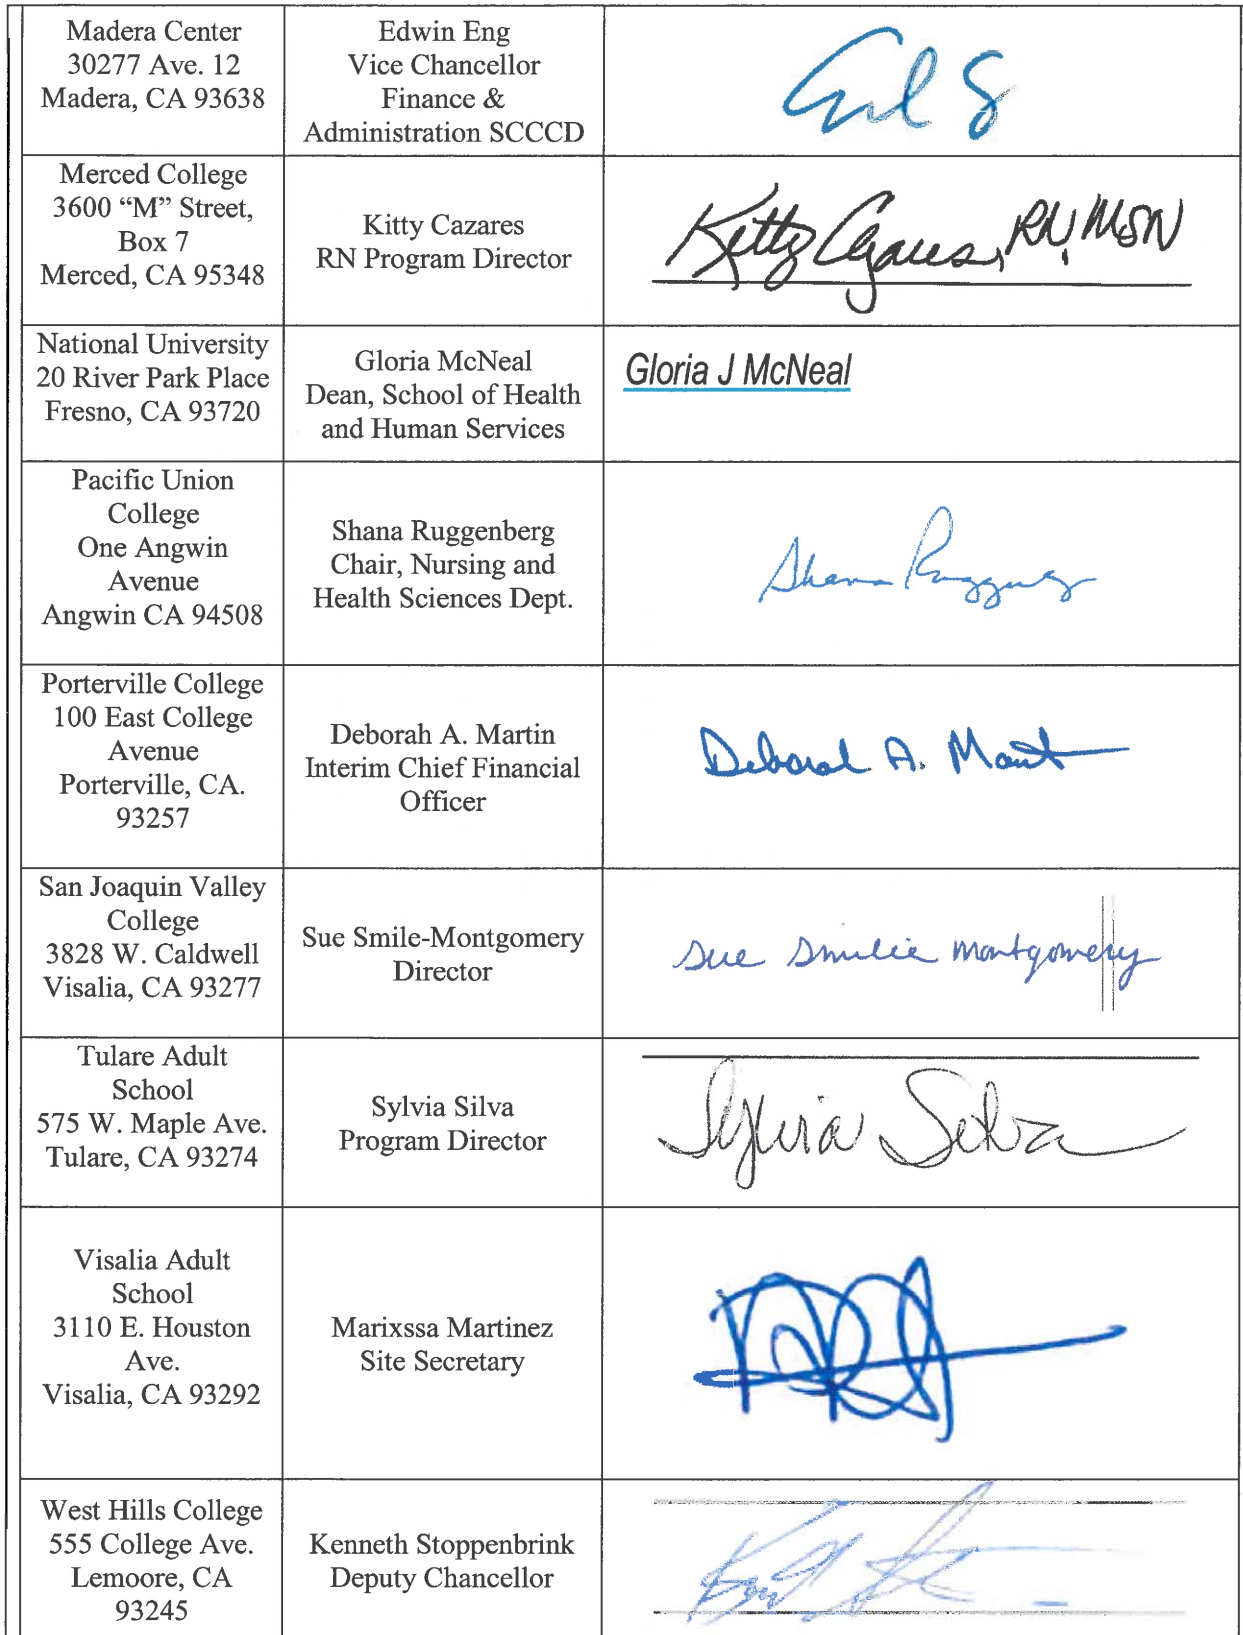 Madera Center
30277 Ave. 12
Madera, CA 93638
Edwin Eng
Vice Chancellor
Finance &
Administration SCCCD
Merced College
3600 “M” Street,
Box 7
Merced, CA 95348
Kitty Cazares
RN Program Director
Kitty Cazares, RN, MSN
National University
20 River Park Place
Fresno, CA 93720
Gloria McNeal
Dean, School of Health
and Human Services
Gloria J McNeal
Pacific Union
College
One Angwin
Avenue
Angwin CA 94508
Shana Ruggenberg
Chair, Nursing and
Health Sciences Dept.
Shana
Porterville College
100 East College
Avenue
Porterville, CA.
93257
Deborah A. Martin
Interim Chief Financial
Officer
Deborah A. Martin
San Joaquin Valley
College
3828 W. Caldwell
Visalia, CA 93277
Sue Smile-Montgomery
Director
Sue Smilie Montgomery
Tulare Adult
School
575 W. Maple Ave.
Tulare, CA 93274
Sylvia Silva
Program Director
Sylvia Silva
Visalia Adult
School
3110 E. Houston
Ave.
Visalia, CA 93292
Marixssa Martinez
Site Secretary
West Hills College
555 College Ave.
Lemoore, CA
93245
Kenneth Stoppenbrink
Deputy Chancellor